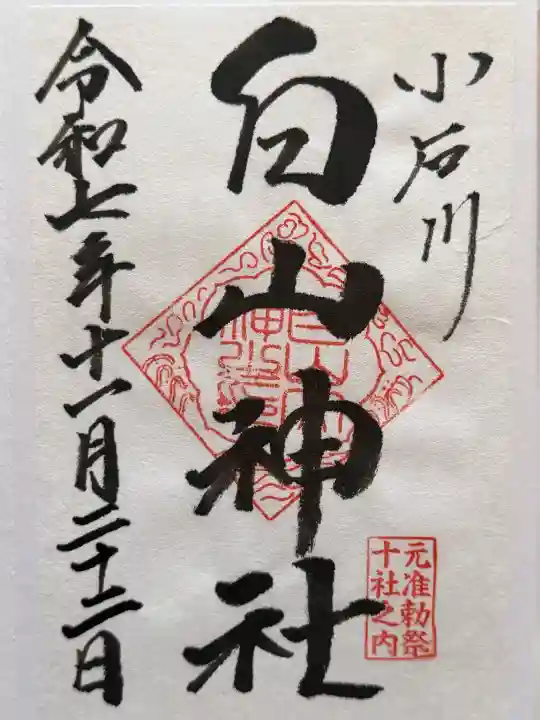 小石川
白山神社
元准勅祭
十社之内
令和七年十一月二十二日